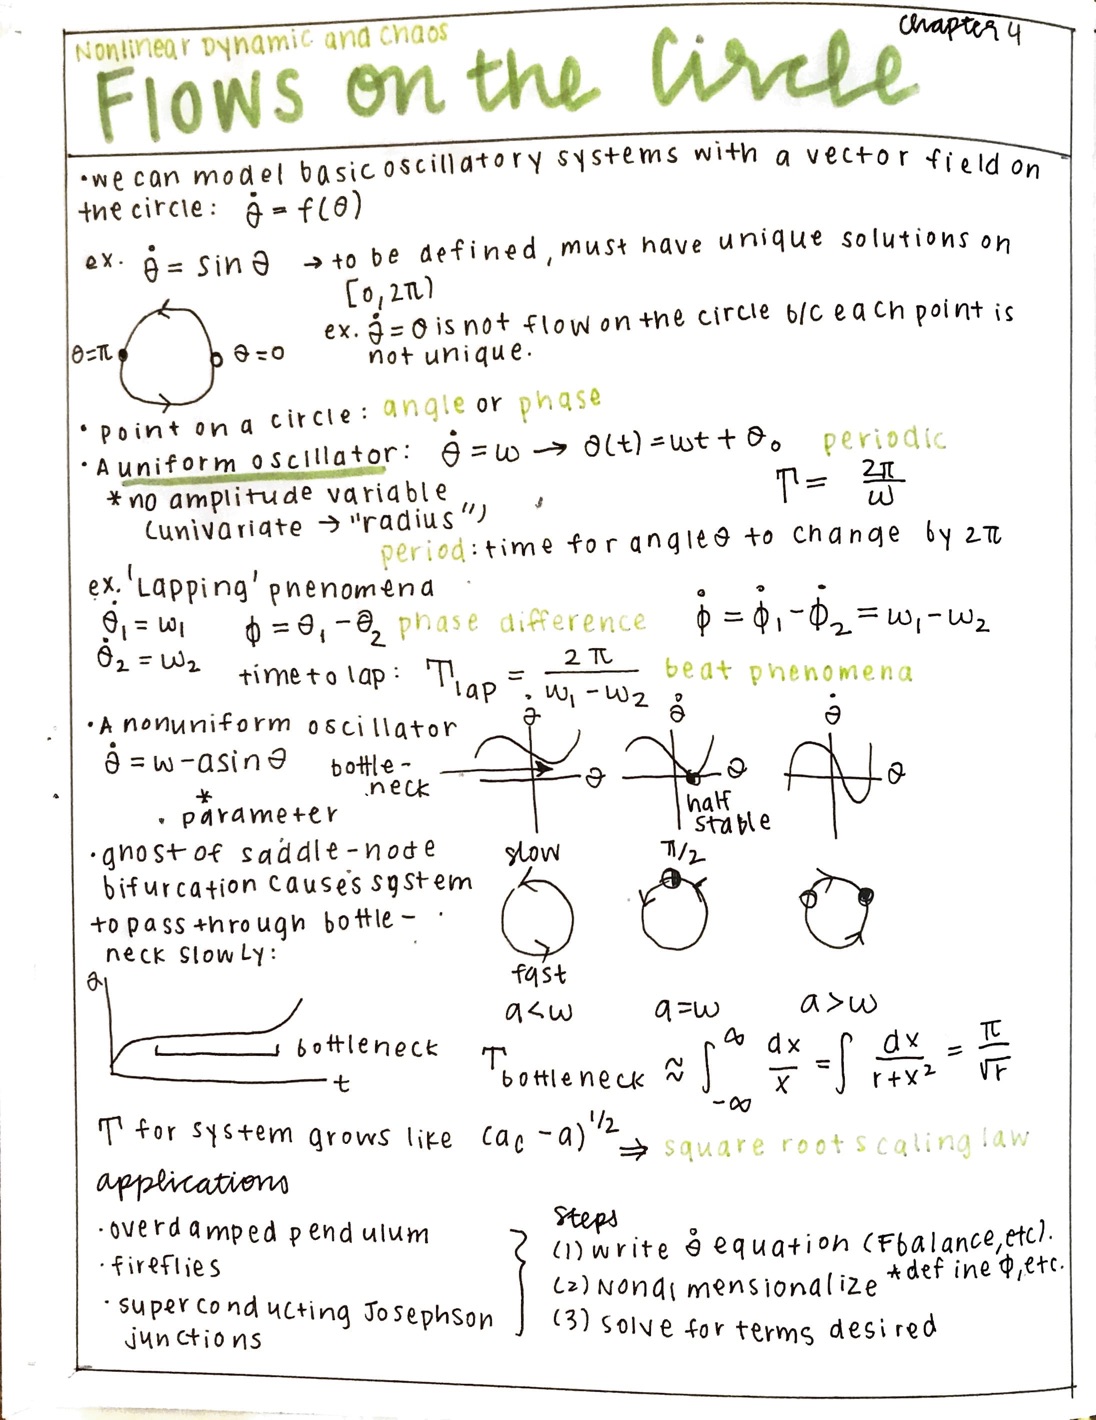 Nonlinear Dynamic and Chaos
Chapter 4
Flows on the Circle
•we can model basic oscillatory systems with a vector field on
the circle: θ̇ = f(θ)
ex. θ̇ = sin θ → to be defined, must have unique solutions on
[0, 2π)
ex. θ̇ = θ is not flow on the circle b/c each point is
not unique.
θ=π θ=0
• point on a circle: angle or phase
• A uniform oscillator: θ̇ = ω → θ(t) = ωt + θ₀ periodic
T = 2π/ω
* no amplitude variable
(univariate → "radius")
period: time for angle θ to change by 2π
ex. 'Lapping' phenomena
θ̇₁ = ω₁ ϕ = θ₁ - θ₂ phase difference ϕ̇ = ϕ̇₁ - ϕ̇₂ = ω₁ - ω₂
θ̇₂ = ω₂
time to lap: T lap = 2π/(ω₁ - ω₂) beat phenomena
• A nonuniform oscillator
θ̇ = ω - a sin θ
* parameter
bottle-
neck
θ̇ θ
θ̇ θ
half
stable
θ̇ θ
• ghost of saddle-node
bifurcation causes system
to pass through bottle-
neck slowly:
slow
fast
a<ω
π/2
a=ω
a>ω
θ
bottleneck
t
T bottleneck ≈ ∫_{-∞}^{∞} dx/ẋ = ∫ dx/(r+x²) = π/√r
T for system grows like (a_c - a)^{1/2} ⇒ square root scaling law
applications
• overdamped pendulum
• fireflies
• superconducting Josephson
junctions
Steps
(1) write θ̇ equation (Fbalance, etc).
(2) Nondimensionalize *define ϕ, etc.
(3) solve for terms desired